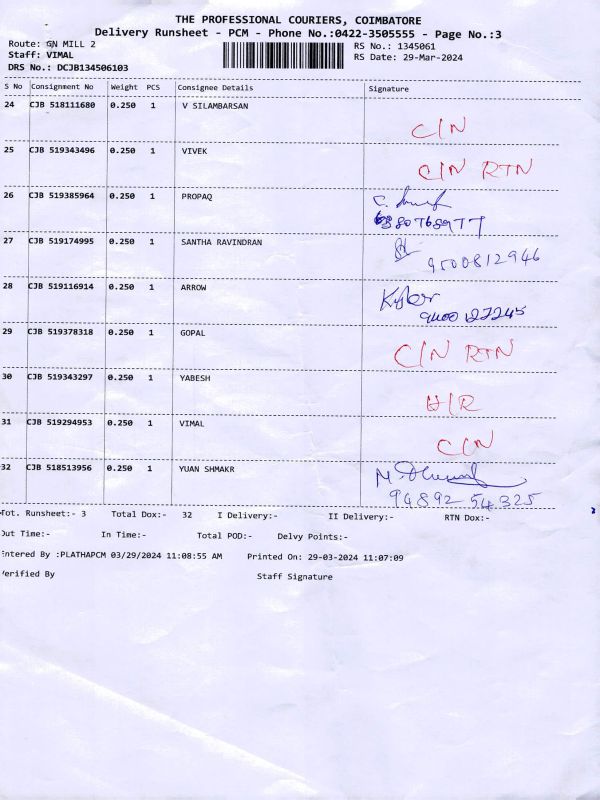 THE PROFESSIONAL COURIERS, COIMBATORE
Delivery Runsheet - PCM - Phone No.:0422-3505555 - Page No.:3
Route: GN MILL 2
RS No.: 1345061
Staff: VIMAL
RS Date: 29-Mar-2024
DRS No.: DCJB134506103
S No Consignment No Weight PCS Consignee Details Signature
24 CJB 518111680 0.250 1 V SILAMBARSAN
C/N
25 CJB 519343496 0.250 1 VIVEK
C/N RTN
26 CJB 519385964 0.250 1 PROPAQ
6380768977
27 CJB 519174995 0.250 1 SANTHA RAVINDRAN
9500812946
28 CJB 519116914 0.250 1 ARROW
29 CJB 519378318 0.250 1 GOPAL
C/N RTN
30 CJB 519343297 0.250 1 YABESH
31 CJB 519294953 0.250 1 VIMAL
C/N
32 CJB 518513956 0.250 1 YUAN SHMAKR
94892 54325
Tot. Runsheet:- 3 Total Dox:- 32 I Delivery:- II Delivery:- RTN Dox:-
Out Time:- In Time:- Total POD:- Delvy Points:-
Entered By :PLATHAPCM 03/29/2024 11:08:55 AM Printed On: 29-03-2024 11:07:09
Verified By Staff Signature